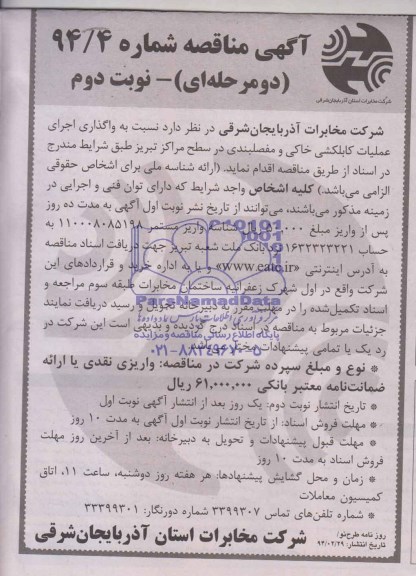 آگهی مناقصه شماره ۹۴/۴
(دومرحله‌ای)- نوبت دوم
شرکت مخابرات استان آذربایجان‌شرقی
شرکت مخابرات آذربایجان‌شرقی در نظر دارد نسبت به واگذاری اجرای
عملیات کابلکشی خاکی و مفصلبندی در سطح مراکز تبریز طبق شرایط مندرج
در اسناد از طریق مناقصه اقدام نماید. (ارائه شناسه ملی برای اشخاص حقوقی
الزامی می‌باشد.) کلیه اشخاص واجد شرایط که دارای توان فنی و اجرایی در
زمینه مذکور می‌باشند، می‌توانند از تاریخ نشر نوبت اول آگهی به مدت ده روز
پس از واریز مبلغ شناسه واریز مستمر ۱۱۰۰۰۸۰۸۵۱۹۸ به
حساب ۱۶۳۲۳۳۳۲۲۱ بانک ملت شعبه تبریز جهت دریافت اسناد مناقصه
به آدرس اینترنتی «www.eaic.ir» و یا به اداره خرید و قراردادهای این
شرکت واقع در اول شهرک زعفرانیه ساختمان مخابرات طبقه سوم مراجعه و
اسناد تکمیل‌شده را در مهلت مقرر به دبیرخانه تحویل و رسید دریافت نمایند
جزئیات مربوط به مناقصه در اسناد درج گردیده و بدیهی است این شرکت در
رد یک یا تمامی پیشنهادات مختار می‌باشد.
* نوع و مبلغ سپرده شرکت در مناقصه: واریزی نقدی یا ارائه
ضمانت‌نامه معتبر بانکی ۶۱,۰۰۰,۰۰۰ ریال
* تاریخ انتشار نوبت دوم: یک روز بعد از انتشار آگهی نوبت اول
* مهلت فروش اسناد: از تاریخ انتشار نوبت اول آگهی به مدت ۱۰ روز
* مهلت قبول پیشنهادات و تحویل به دبیرخانه: بعد از آخرین روز مهلت
فروش اسناد به مدت ۱۰ روز
* زمان و محل گشایش پیشنهادها: هر هفته روز دوشنبه، ساعت ۱۱، اتاق
کمیسیون معاملات
* شماره تلفن‌های تماس ۳۳۹۹۳۰۷ شماره دورنگار: ۳۳۳۹۹۳۰۱
شرکت مخابرات استان آذربایجان‌شرقی
روزنامه طرح‌نو/
تاریخ انتشار: ۹۴/۰۲/۲۹
ParsNamadData
پایگاه اطلاع رسانی مناقصه و مزایده
۰۲۱-۸۸۳۴۹۶۷۰-۵